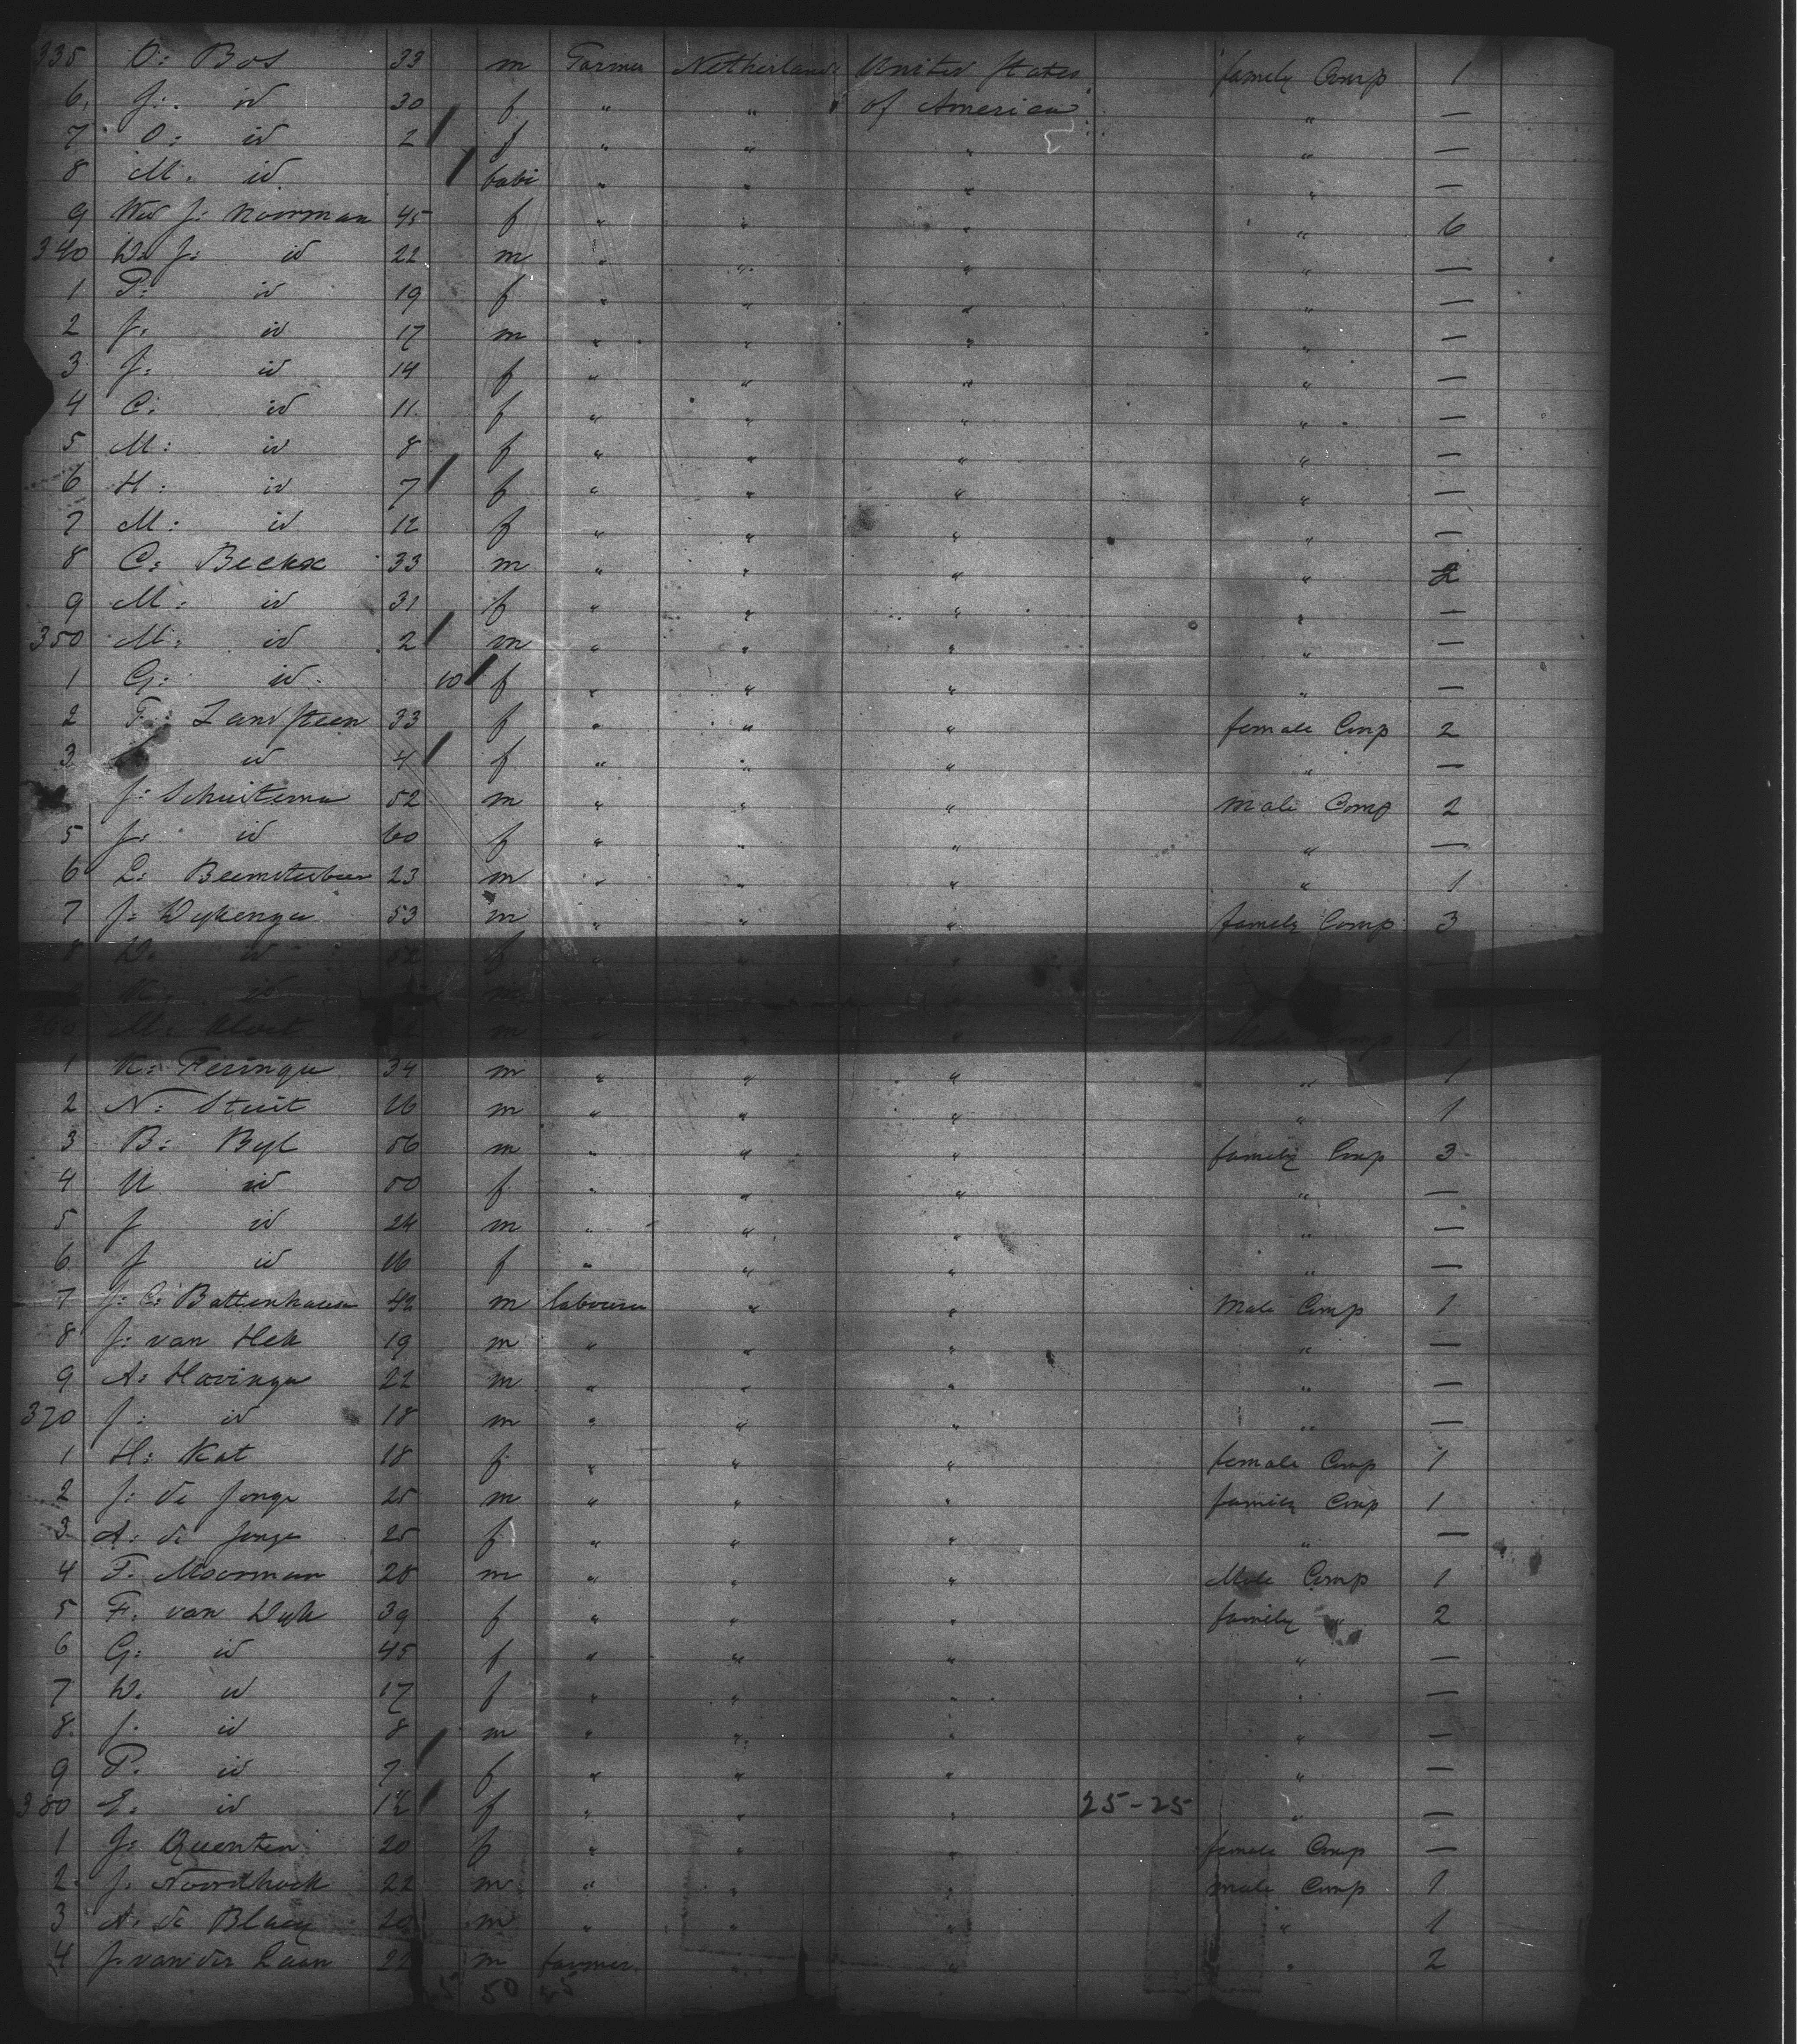 335 O: Bos 33 m Farmer Netherlands United States family Comp 1
6 J: id 30 f " " of America " —
7 O: id 2 f " " " " —
8 M: id babi " " " " —
9 Wed J: Noorman 45 f " " " " 6
340 D: J: id 22 m " " " " —
1 P: id 19 f " " " " —
2 J: id 17 m " " " " —
3 J: id 14 f " " " " —
4 C: id 11 f " " " " —
5 M: id 8 f " " " " —
6 H: id 7 f " " " " —
7 M: id 12 f " " " " —
8 C: Beckx 33 m " " " " 2
9 M: id 31 f " " " " —
350 M: id 2 m " " " " —
1 G: id 10 f " " " " —
2 F: Zandsteen 33 f " " " female Comp 2
3 id 4 f " " " " —
J: Schuitema 52 m " " " male Comp 2
5 J: id 60 f " " " " —
6 L: 23 m " " " " 1
7 J: Dykenga 53 m " " " family Comp 3
8 D: id 52 f " " "
id m
M: m " " "
1 K: Feringa 34 m " " " " 1
2 N: Stuit 16 m " " " " 1
3 B: Byl 56 m " " " family Comp 3
4 id 50 f " " " " —
5 J id 24 m " " " " —
6 J id 16 f " " " " —
7 J: C: Battenhausen 42 m labourer " " Male Comp 1
8 J: van Hek 19 m " " " " —
9 A: Hovinga 22 m " " " " —
370 J: id 18 m " " " " —
1 H: Kat 18 f " " " female Comp 1
2 J: de Jonge 25 m " " " family Comp 1
3 A: de Jonge 25 f " " " " —
4 F. Moorman 28 m " " " Male Comp 1
5 F. van Dyk 39 f " " " family " 2
6 G: id 45 f " " " " —
7 D. id 17 f " " " " —
8 J. id 8 m " " " " —
9 P. id 7 f " " " " —
380 E: id f " " " 25-25 " —
1 G: Quenten 20 f " " " female Comp —
2 J. Noordhoek 22 m " " " male Comp 1
3 A. de Blaey 20 m " " " " 1
4 J. van der Laan 22 m farmer " " " 2
50